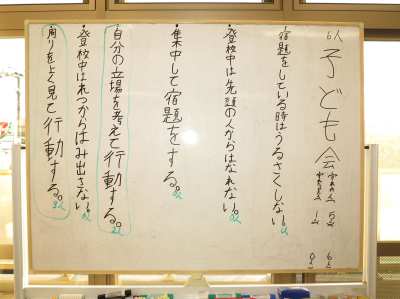 子ども会
・宿題をしている時はうるさくしない。
・登校中は先頭の人からはなれない。
・集中して宿題をする。
・自分の立場を考えて行動する。
・登校中はれつからはみ出さない。
・周りをよく見て行動する。